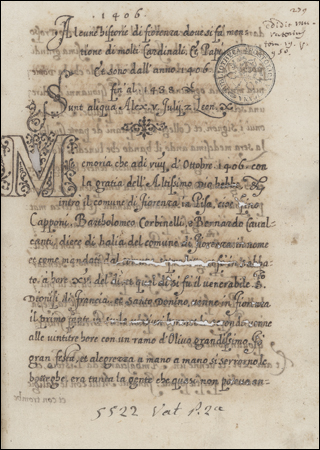 · 1406 ·
239
Alcune historie di fiorenza doue si fa men
tione di molti Cardinali, Et Papi
Et sono dall'anno 1406.
fin al 1438
Sunt aliqua Alex. v. July. 2. Leon. X
Memoria che adi viiij d'Ottobre 1406. con
la gratia dell'Altissimo Dio hebbe
intro il comune di fiorenza in Pisa, cioè Gino
Capponi, Bartholomeo Corbinelli, e Bernardo Caual-
canti, dieci di balia del comune di fiorenza, in nome
et come mandati dal
to, a hore del di, et quel di si fu il venerabile S.
Dionisi di Francia, et Santo Domino, venne in fiorenza
il primo fante
alle ventitre hore con un ramo d'Oliuo grandissimo, fu
gran festa, et alegrezza a mano a mano si serrorno le
botteghe, era tanta la gente che quasi non poteua an-
5522 Vat P. 2